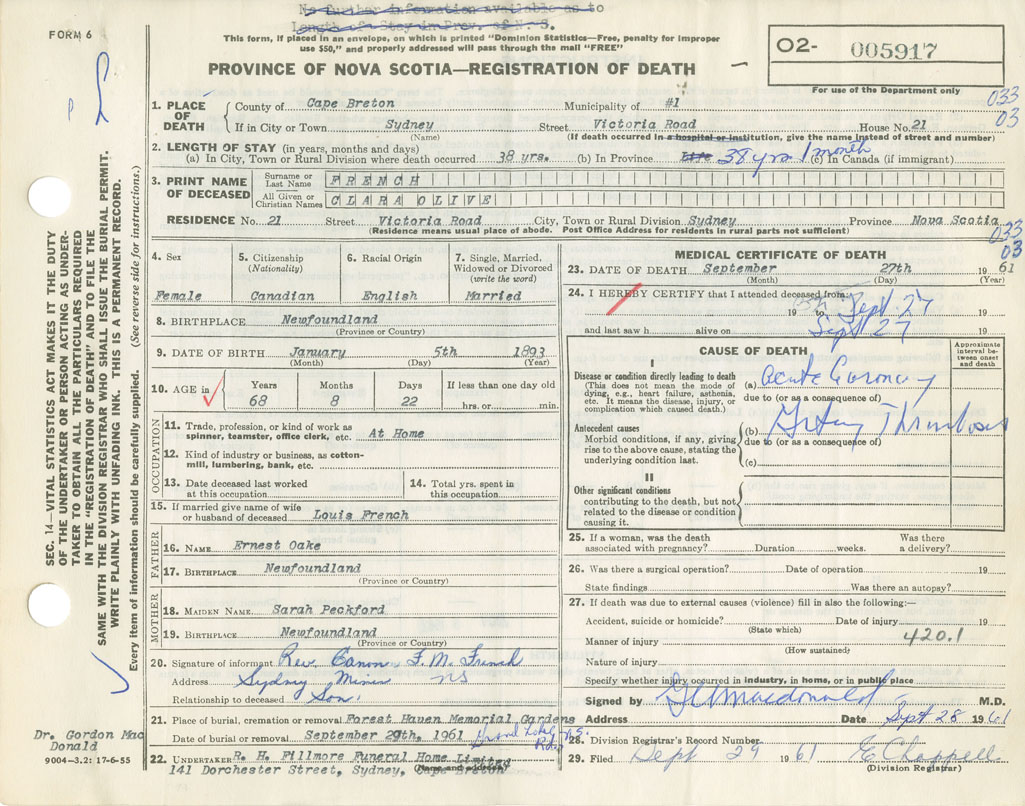 No further information available as to
Length of Stay in Prov. of N. S.
FORM 6
This form, if placed in an envelope, on which is printed "Dominion Statistics—Free, penalty for improper
use $50," and properly addressed will pass through the mail "FREE"
PROVINCE OF NOVA SCOTIA—REGISTRATION OF DEATH
O2- 005917
For use of the Department only
033
03
1. PLACE OF DEATH County of Cape Breton Municipality of #1
If in City or Town Sydney Street Victoria Road House No. 21
(Name) (If death occurred in a hospital or institution, give the name instead of street and number)
2. LENGTH OF STAY (in years, months and days)
(a) In City, Town or Rural Division where death occurred 38 yrs. (b) In Province Life 38 yrs 1 month (c) In Canada (if immigrant)
3. PRINT NAME OF DECEASED
Surname or Last Name FRENCH
All Given or Christian Names CLARA OLIVE
RESIDENCE No. 21 Street Victoria Road City, Town or Rural Division Sydney Province Nova Scotia
(Residence means usual place of abode. Post Office Address for residents in rural parts not sufficient)
033
03
4. Sex Female
5. Citizenship (Nationality) Canadian
6. Racial Origin English
7. Single, Married, Widowed or Divorced (write the word) Married
8. BIRTHPLACE Newfoundland
(Province or Country)
9. DATE OF BIRTH January 5th 1893
(Month) (Day) (Year)
10. AGE in Years Months Days If less than one day old
68 8 22 hrs. or min.
OCCUPATION
11. Trade, profession, or kind of work as
spinner, teamster, office clerk, etc. At Home
12. Kind of industry or business, as cotton-
mill, lumbering, bank, etc.
13. Date deceased last worked
at this occupation
14. Total yrs. spent in
this occupation
15. If married give name of wife
or husband of deceased Louis French
FATHER
16. NAME Ernest Oake
17. BIRTHPLACE Newfoundland
(Province or Country)
MOTHER
18. MAIDEN NAME Sarah Peckford
19. BIRTHPLACE Newfoundland
(Province or Country)
20. Signature of informant Rev. Canon F. M. French
Address Sydney Mines NS
Relationship to deceased Son
21. Place of burial, cremation or removal Forest Haven Memorial Gardens
Date of burial or removal September 29th, 1961 Grand Lake Rd. N.S.
22. UNDERTAKER R. H. Fillmore Funeral Home Limited
(Name and address)
141 Dorchester Street, Sydney, Cape Breton
MEDICAL CERTIFICATE OF DEATH
23. DATE OF DEATH September 27th 1961
(Month) (Day) (Year)
24. I HEREBY CERTIFY that I attended deceased from
19 to Sept. 27 19
and last saw h alive on Sept 27 19
CAUSE OF DEATH
Approximate interval between onset and death
I
Disease or condition directly leading to death
(This does not mean the mode of
dying, e.g., heart failure, asthenia,
etc. It means the disease, injury, or
complication which caused death.)
(a) Acute Coronary
due to (or as a consequence of)
Antecedent causes
Morbid conditions, if any, giving
rise to the above cause, stating the
underlying condition last.
(b) Artery Thrombosis
due to (or as a consequence of)
(c)
II
Other significant conditions
contributing to the death, but not
related to the disease or condition
causing it.
25. If a woman, was the death
associated with pregnancy? Duration weeks. Was there
a delivery?
26. Was there a surgical operation? Date of operation 19
State findings Was there an autopsy?
27. If death was due to external causes (violence) fill in also the following:—
Accident, suicide or homicide? Date of injury 19
(State which)
420.1
Manner of injury
(How sustained)
Nature of injury
Specify whether injury occurred in industry, in home, or in public place
Signed by M.D.
Address Date Sept 28 1961
28. Division Registrar's Record Number
29. Filed Sept 29 1961 E Chappell
(Division Registrar)
SEC. 14—VITAL STATISTICS ACT MAKES IT THE DUTY
OF THE UNDERTAKER OR PERSON ACTING AS UNDER-
TAKER TO OBTAIN ALL THE PARTICULARS REQUIRED
IN THE "REGISTRATION OF DEATH" AND TO FILE THE
SAME WITH THE DIVISION REGISTRAR WHO SHALL ISSUE THE BURIAL PERMIT.
WRITE PLAINLY WITH UNFADING INK. THIS IS A PERMANENT RECORD.
Every item of information should be carefully supplied. (See reverse side for instructions.)
Dr. Gordon Mac
Donald
9004—3.2: 17-6-55